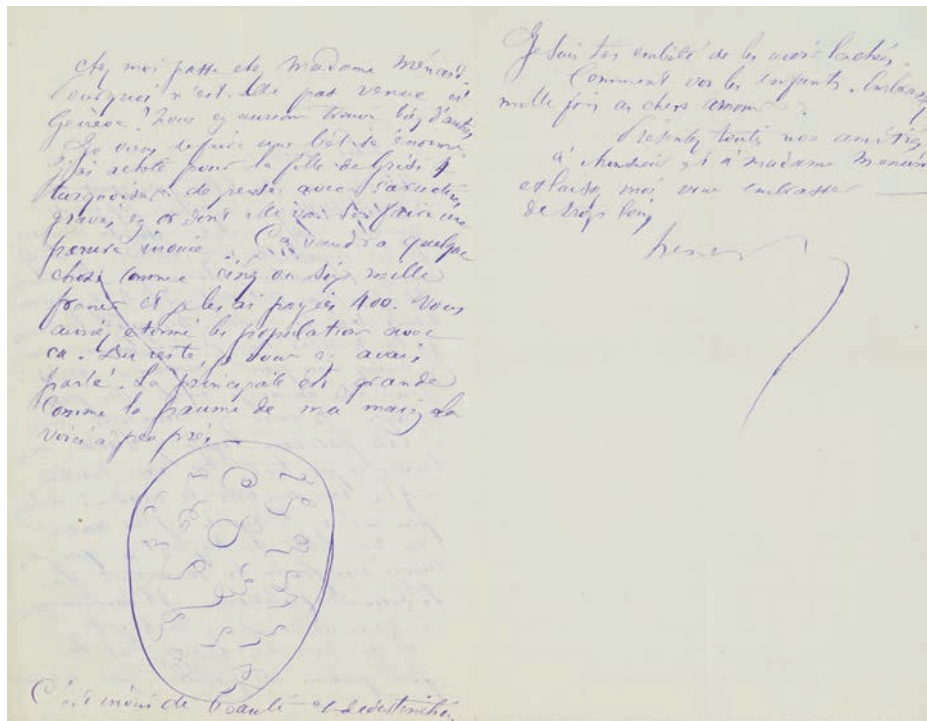 chez moi passe chez Madame Ménard.
Pourquoi n'est-elle pas venue à
Genève? Nous en aurions trouvé bien d'autres
Je viens de faire une bêtise énorme
J'ai acheté pour la fille de 
turquoises de perse avec caractères
gravés en or dont elle va se faire une
parure inouie. Ça vaudra quelque
chose comme cinq ou six mille
francs et je les ai payés 400. Vous
auriez étonné les population avec
ça. Du reste, je vous en avais
parlé. La principale est grande
comme la paume de ma main. La
voici à peu près
C'est inouï de beauté et de
Je suis très embêté de les avoir lachées.
Comment vos les enfants. Embrassez
mille fois ces chers amours
Présentez toutes nos amitiés
à monsieur et à madame
et laissez moi vous embrasser
de trop loin